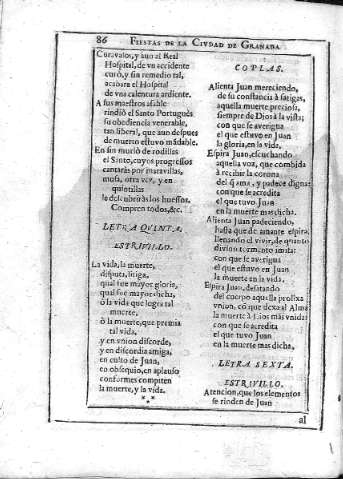 86 FIESTAS DE LA CIVDAD DE GRANADA
Curavalos, y aun al Real
Hospital, de vn accidente
curò, y sin remedio tal,
acabara el Hospital
de vna calentura ardiente.
A sus maestros afable
rindiò el Santo Portuguès
su obediencia venerable,
tan liberal, que aun despues
de muerto estuvo mãdable.
En fin muriò de rodillas
el Santo, cuyos progressos
cantaràn por maravillas,
musa, otra vez, y en
quintillas
le descubriràs los huessos.
Compren todos, &c.
LETRA QVINTA.
ESTRIVILLO.
La vida, la muerte,
disputa, litiga,
qual fue mayor gloria,
qual fue mayor dicha,
ò la vida que logra tal
muerte,
ò la muerte, que premia
tal vida,
y en vnion discorde,
y en discordia amiga,
en culto de Juan,
en obsequio, en aplauso
conformes compiten
la muerte, y la vida.
COPLAS.
Alienta Juan mereciendo,
de su constancia à fatigas,
aquella muerte preciosa,
siempre de Dios à la vista;
con que se averigua
el que estuvo en Juan
la gloria, en la vida.
Espira Juan, escuchando
aquella voz, que combida
à recibir la corona
del q̃ ama, y padece digna;
con que se acredita
el que tuvo Juan
en la muerte mas dicha.
Alienta Juan padeciendo,
hasta que de amante espira,
llenando el vivir, de quanto
divino tormento imita;
con que se averigua
el que estuvo en Juan
la muerte en la vida.
Espira Juan, desatando
del cuerpo aquella prolixa
vnion, cõ que dexa al Alma
la muerte à Dios mas vnida;
con que se acredita
el que tuvo Juan
en la muerte mas dicha.
LETRA SEXTA.
ESTRIVILLO.
Atencion, que los elementos
se rinden de Juan
al